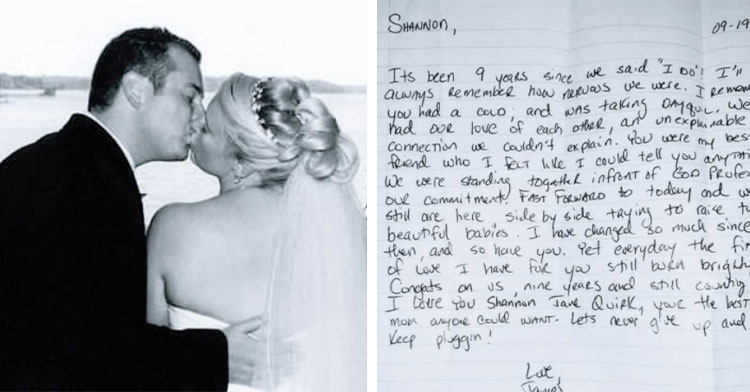 SHANNON,
09-19
Its been 9 years since we said "I DO"! I'll
always Remember how nervous we were. I Remem
you had a cold, and was taking DAYQUIL. We
had our love of each other, an unexplainable
connection we couldn't explain. You were my bes
friend who I felt like I could tell you any
We were standing together infront of GOD Profes
our commitment. Fast Forward to today and w
still are here side by side trying to raise
beautiful babies. I have changed so much since
then, and so have you. Yet everyday the fir
of love I have for you still burn brigh
Congats on us, nine years and still counting
I love You Shannon Jane Quirk, your the best
mom anyone could want. Lets never give up and
Keep pluggin!
Love,